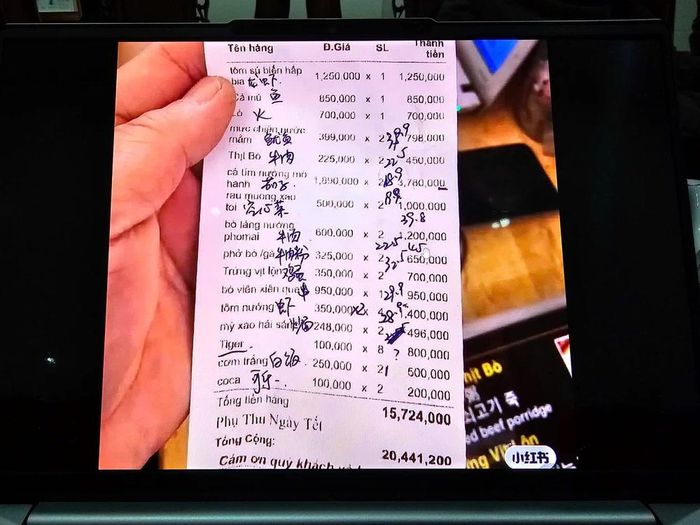 Tên hàng Đ.Giá SL Thành tiền
tôm sú biển hấp
bia 龙虾 1,250,000 x 1 1,250,000
Cá mú 鱼 850,000 x 1 850,000
Lò 火 700,000 x 1 700,000
mực chiên nước
mắm 鱿鱼 399,000 x 2 39.9 798,000
Thịt Bò 牛肉 225,000 x 2 22.5 450,000
cà tím nướng mỡ
hành 茄子 1,890,000 x 2 18.9 3,780,000
rau muống xào
tỏi 空心菜 500,000 x 2 1,000,000
39.8
bò lăng nướng
phomai 牛肉 600,000 x 2 1,200,000
22.5 45
phở bò /gà 牛肉粉 325,000 x 2 32.5 650,000
Trứng vịt lộn 350,000 x 2 700,000
bò viên xiên que 串 950,000 x 1 29.9 950,000
tôm nướng 虾 350,000 x2 x 38.9 1,400,000
mỳ xào hải sản 248,000 x 2 496,000
Tiger 100,000 x 8 ? 800,000
cơm trắng 白饭 250,000 x 21 500,000
coca 100,000 x 2 200,000
Tổng tiền hàng 15,724,000
Phụ Thu Ngày Tết
Tổng Cộng: 20,441,200
Cảm ơn quý khách
Thịt Bò
쇠고기 죽
ed beef porridge
ng Vịt
小红书